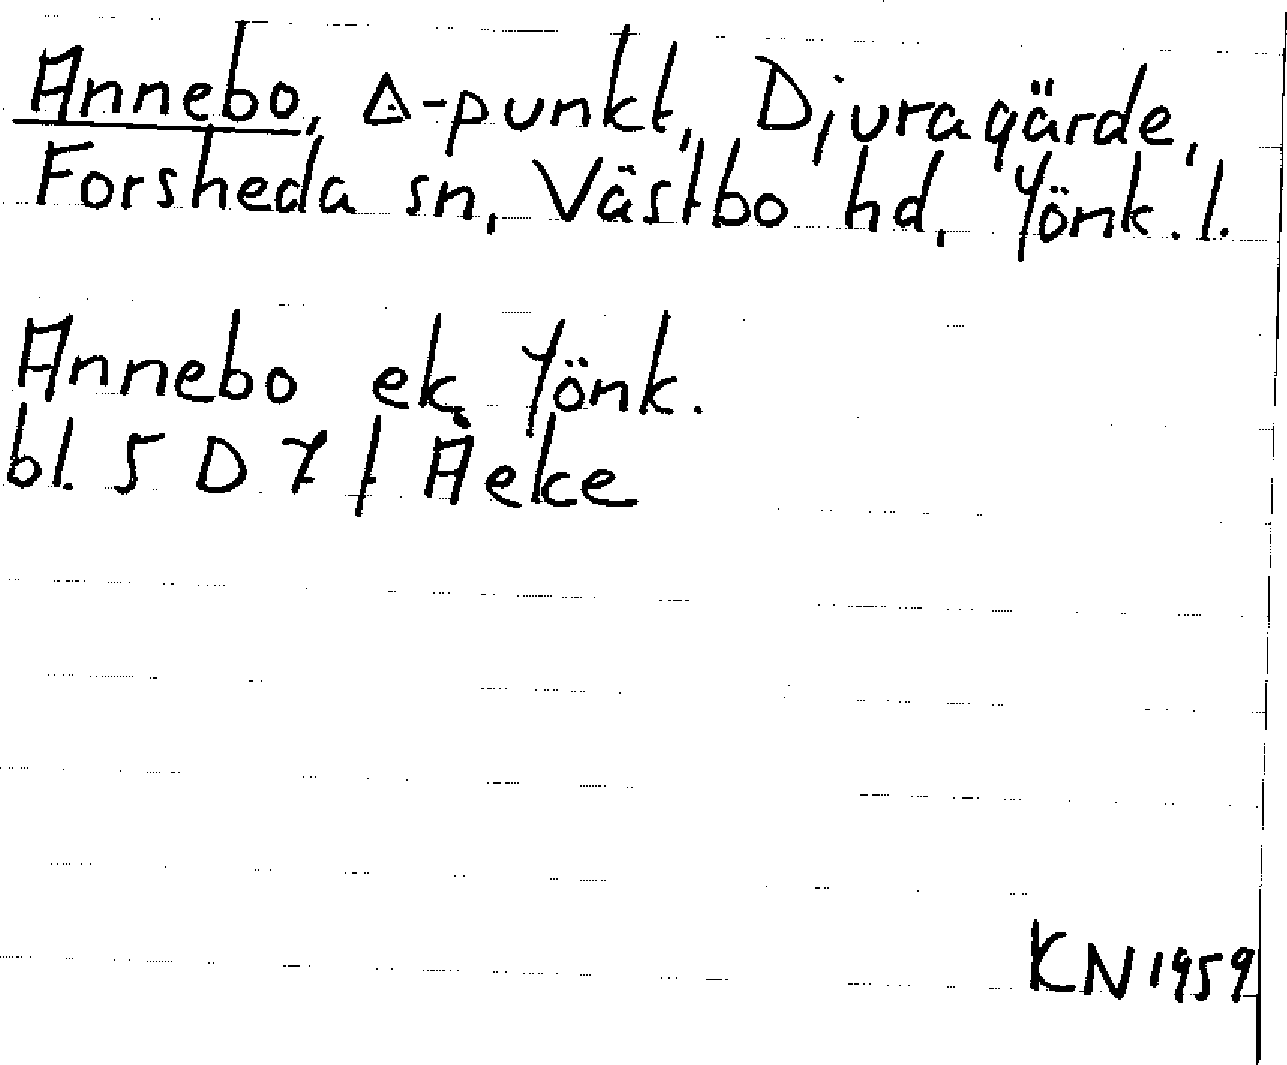 Annebo, △-punkt, Djuragärde,
Forsheda sn, Västbo hd, Jönk. l.
Annebo ek Jönk.
bl. 5 D 7 f Åeke
KN 1959